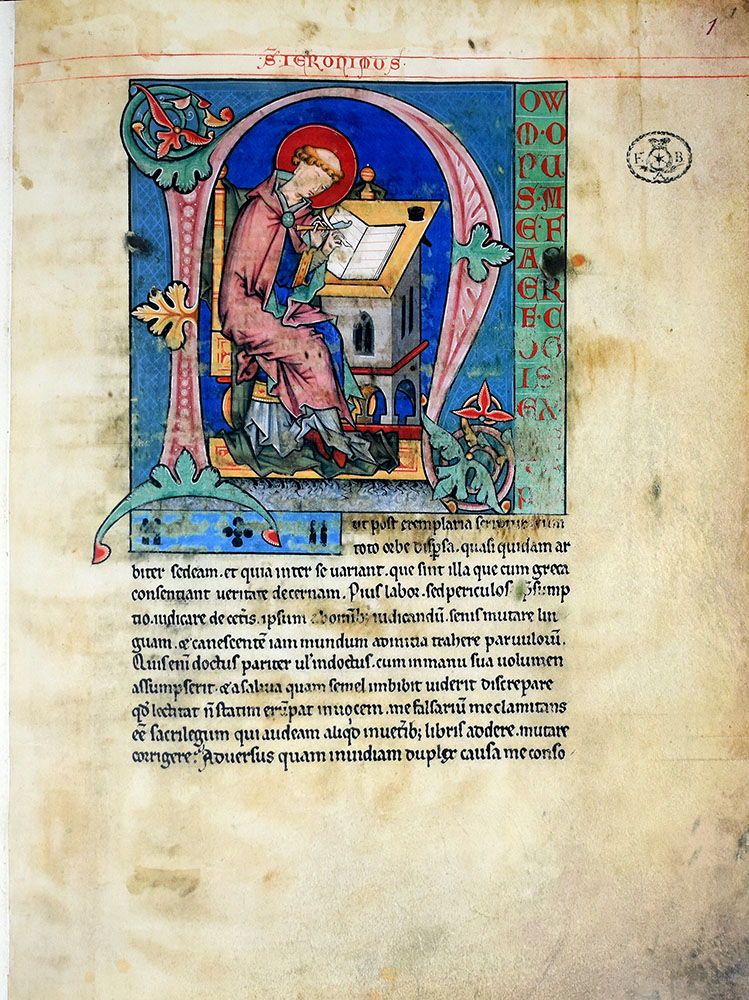 S̄·IERONIMUS·
1
OW
M·O
PU
S·M
E·F
A
ER
E·C
OG
IS
EX
F. B.
ut post exemplaria
toto orbe dispsa. quasi quidam ar
biter sedeam. et quia inter se variant. que sint illa que cum greca
consentiant veritate decernam. Pius labor. sed periculosa p̄sump
tio. iudicare de cet̄is. ipsum ab omīb; iudicandū. senis mutare lin
guam. et canescentē iam mundum ad initia trahere parvulorū.
Quis enī doctus pariter ul' indoctus. cum in manu sua volumen
assumpserit. et a saliva quam semel imbibit viderit discrepare
qd̄ lectitat n̄ statim erūpat in vocem. me falsarium me clamitans
eē sacrilegum qui audeam aliqd in vetīb; libris addere. mutare
corrigere; Adversus quam invidiam duplex causa me conso